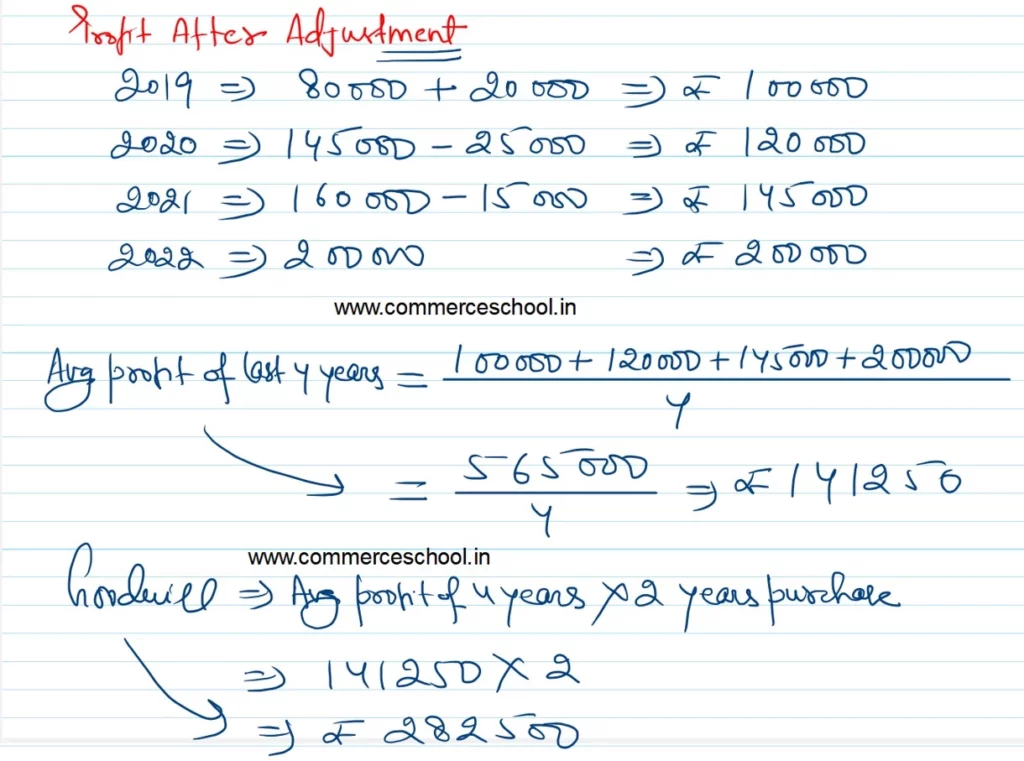 Profit After Adjustment
2019 ⇒ 80000 + 20000 ⇒ ₹ 100000
2020 ⇒ 145000 - 25000 ⇒ ₹ 120000
2021 ⇒ 160000 - 15000 ⇒ ₹ 145000
2022 ⇒ 200000 ⇒ ₹ 200000
www.commerceschool.in
Avg profit of last 4 years = 100000 + 120000 + 145000 + 200000
4
= 565000 ⇒ ₹ 141250
4
www.commerceschool.in
Goodwill ⇒ Avg profit of 4 years × 2 years purchase
⇒ 141250 × 2
⇒ ₹ 282500